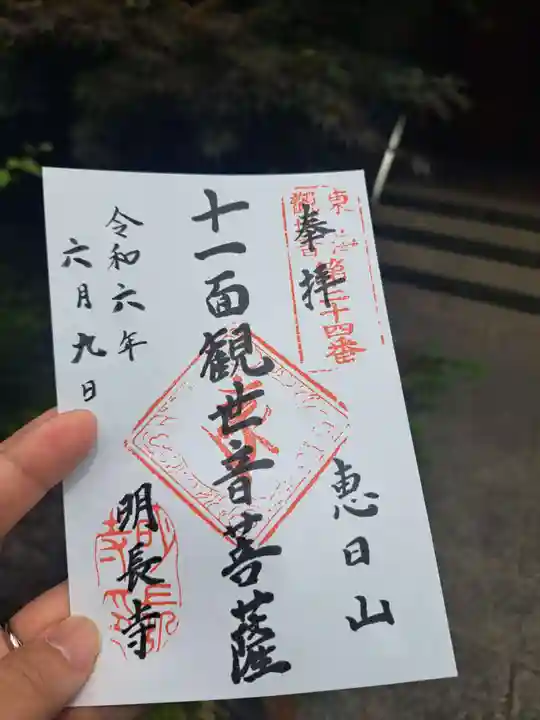 奉拝
東海
第三十四番
恵日山
十一面観世音菩薩
令和六年
六月九日
明長寺